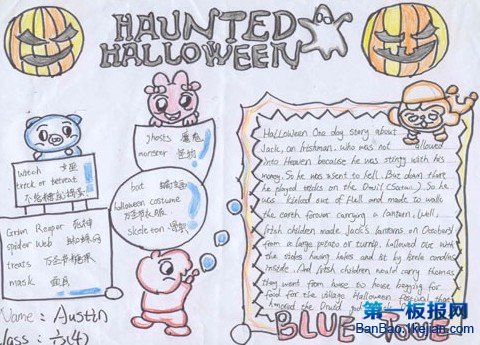 HAUNTED
HALLOWEEN
ghosts 魔鬼
monster 怪物
witch 女巫
trick or tetreat
不给糖就捣蛋
bat 蝙蝠
halloween costume
万圣节衣服
skeleton
Grim Reaper 死神
spider Web 蜘蛛网
treats 万圣节糖果
mask 面具
Name : Austin
class : 六(4)
Halloween One day story about
Jack, an Irishman, who was not allowed
into Heaven because he was stingy with his
money. So he was sent to hell. But down there
he played tricks on the Devil (Satan). So he
was kicked out of Hell and made to walk
the earth forever carrying a lantern. Well,
Irish children made Jack's lanterns on October31
from a large potato or turnip, hollowed out with
the sides having holes and lit by little candles
inside. And Irish children would carry them as
they went from house to house begging for
food for the village Halloween festival that
honored the Druid god
BLUE
第一板报网
BanBao.1kejian.com